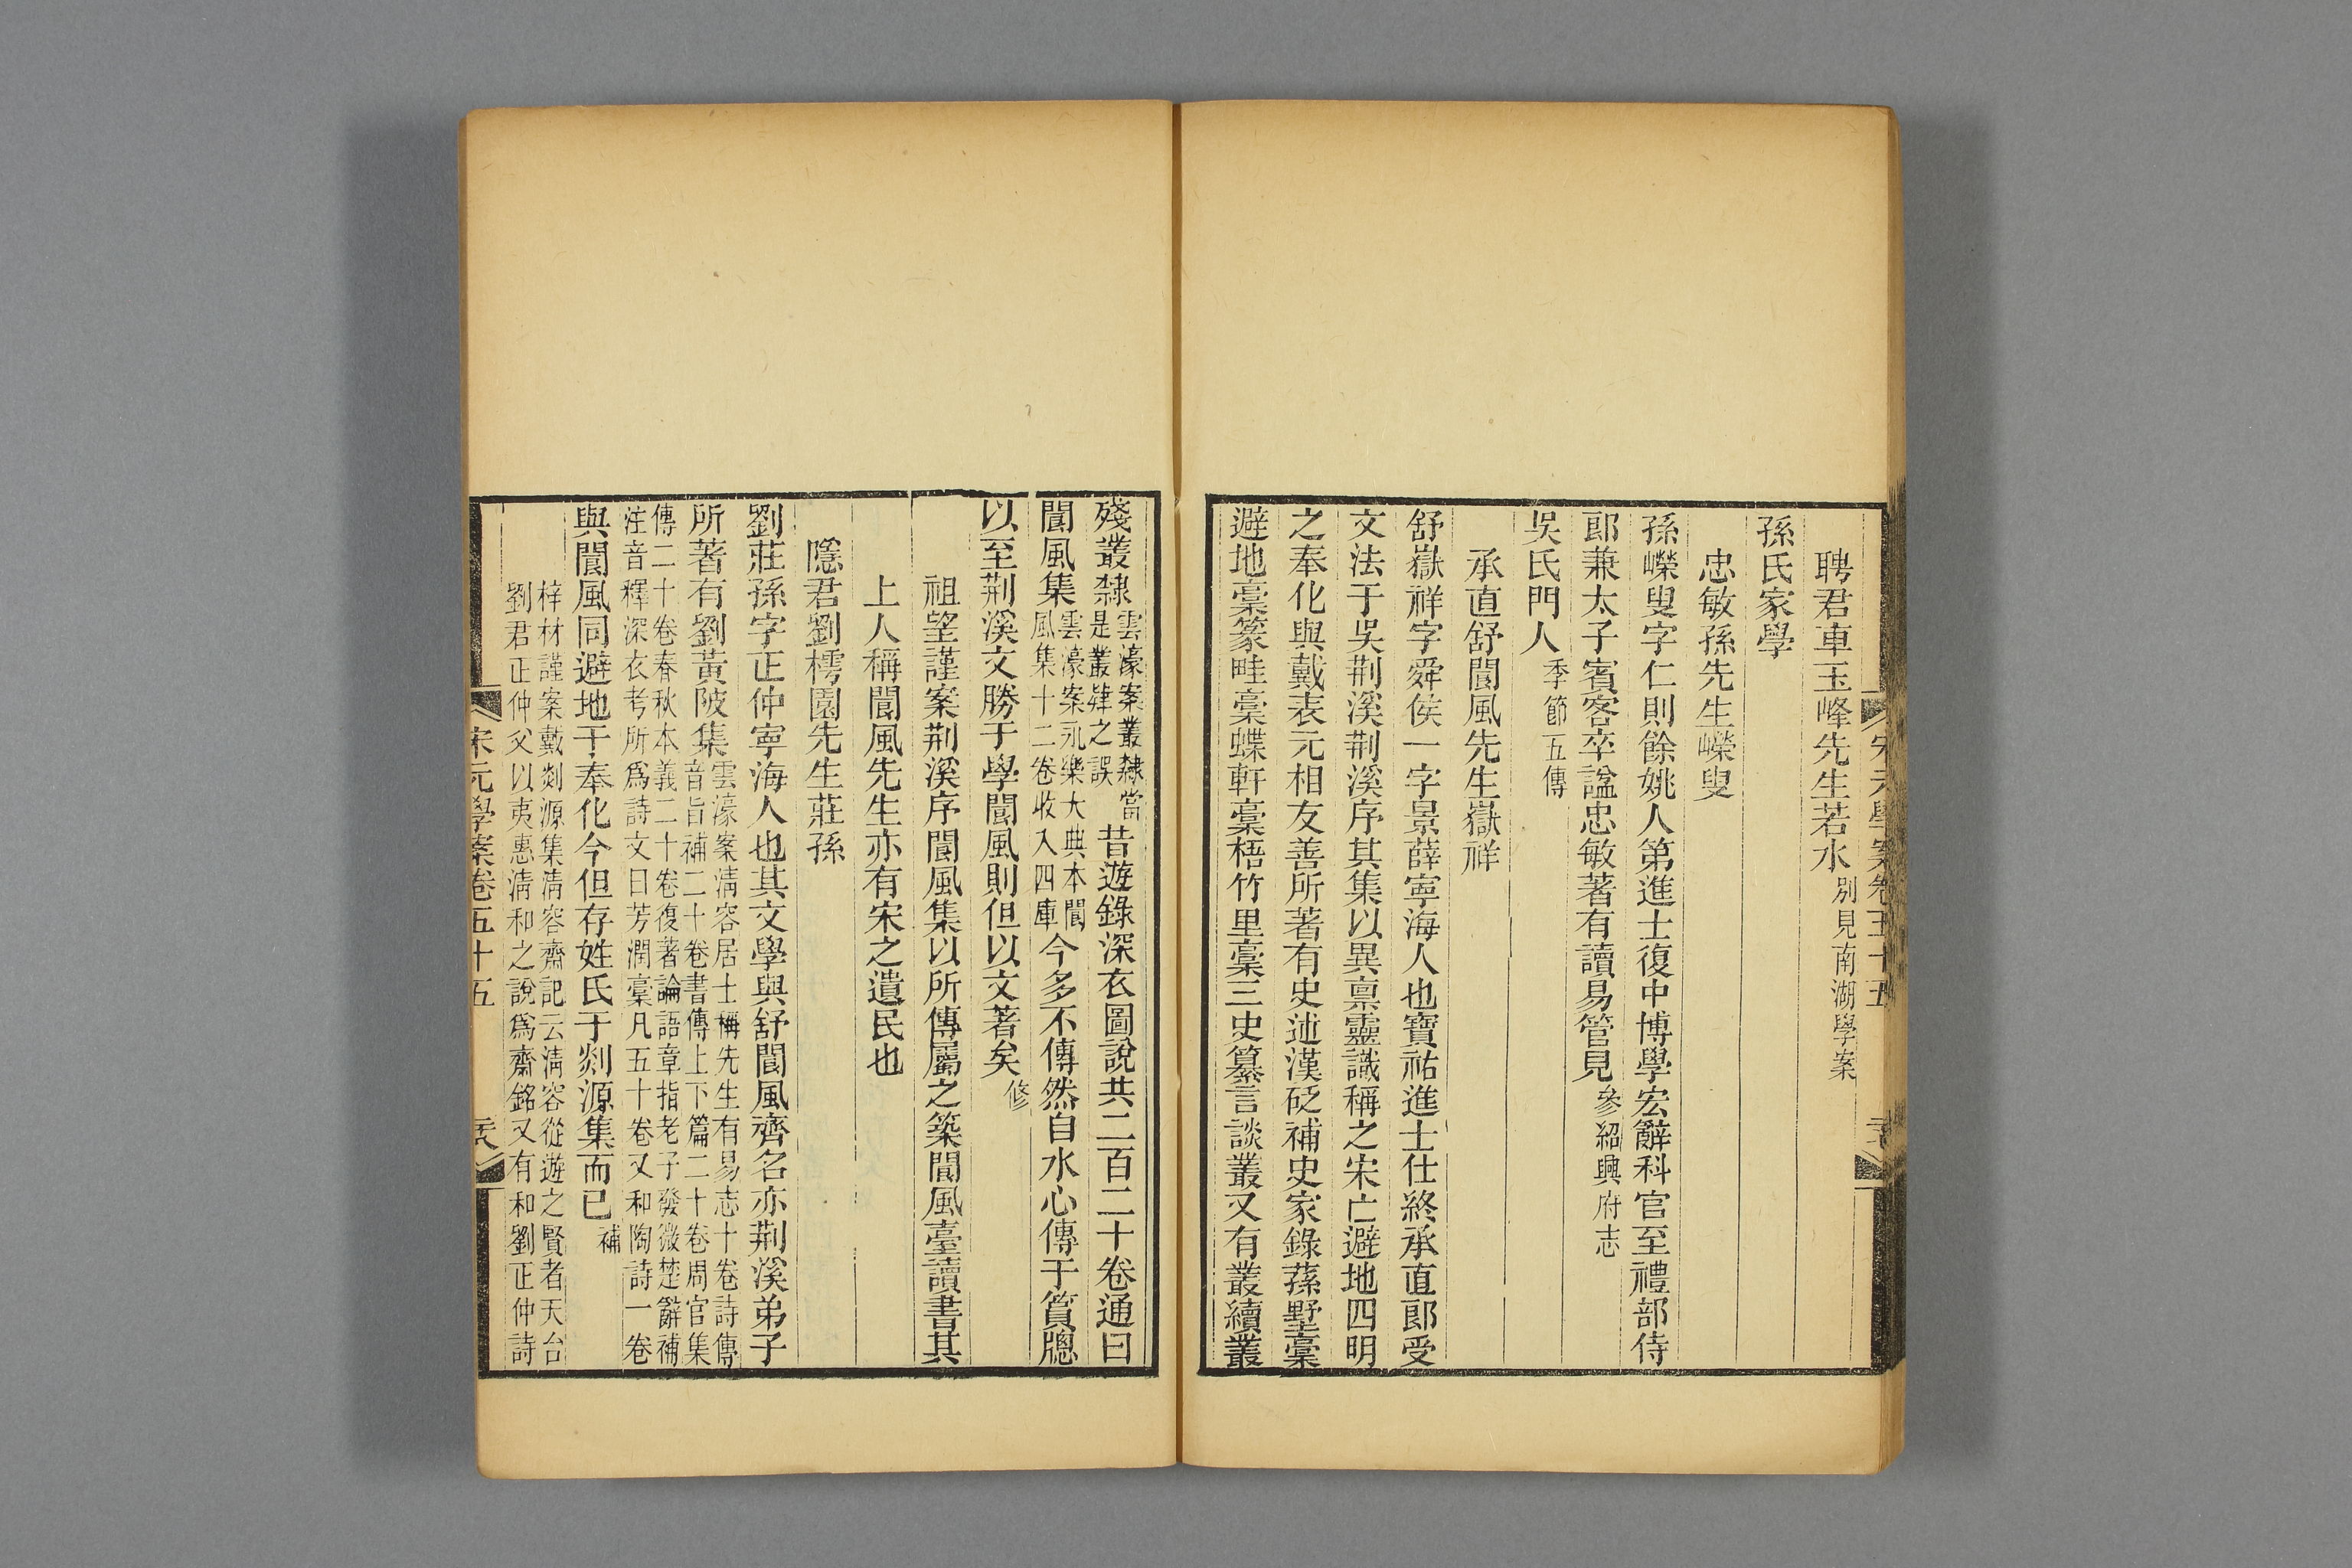 聘君車玉峰先生若水別見南湖學案
孫氏家學
忠敏孫先生嶸叟
孫嶸叟字仁則餘姚人第進士復中博學宏辭科官至禮部侍
郎兼太子賓客卒諡忠敏著有讀易管見參紹興府志
吳氏門人季節五傳
承直舒閬風先生嶽祥
舒嶽祥字舜侯一字景薛寧海人也寶祐進士仕終承直郎受
文法于吳荆溪荆溪序其集以異禀靈識稱之宋亡避地四明
之奉化與戴表元相友善所著有史述漢砭補史家錄蓀墅稾
避地稾篆畦稾蝶軒稾梧竹里稾三史纂言談叢又有叢續叢
殘叢隸雲濠案叢隸當
是叢肄之誤
昔遊錄深衣圖說共二百二十卷通曰
閬風集雲濠案永樂大典本閬
風集十二卷收入四庫
今多不傳然自水心傳于篔牕
以至荆溪文勝于學閬風則但以文著矣修
祖望謹案荆溪序閬風集以所傳屬之築閬風臺讀書其
上人稱閬風先生亦有宋之遺民也
隱君劉樗園先生莊孫
劉莊孫字正仲寧海人也其文學與舒閬風齊名亦荆溪弟子
所著有劉黃陂集雲濠案淸容居士稱先生有易志十卷詩傳
音旨補二十卷書傳上下篇二十卷周官集
傳二十卷春秋本義二十卷復著論語章指老子發微楚辭補
注音釋深衣考所爲詩文曰芳潤稾凡五十卷又和陶詩一卷
與閬風同避地于奉化今但存姓氏于剡源集而已補
梓材謹案戴剡源集淸容齋記云淸容從遊之賢者天台
劉君正仲父以夷惠淸和之說爲齋銘又有和劉正仲詩
宋元學案卷五十五